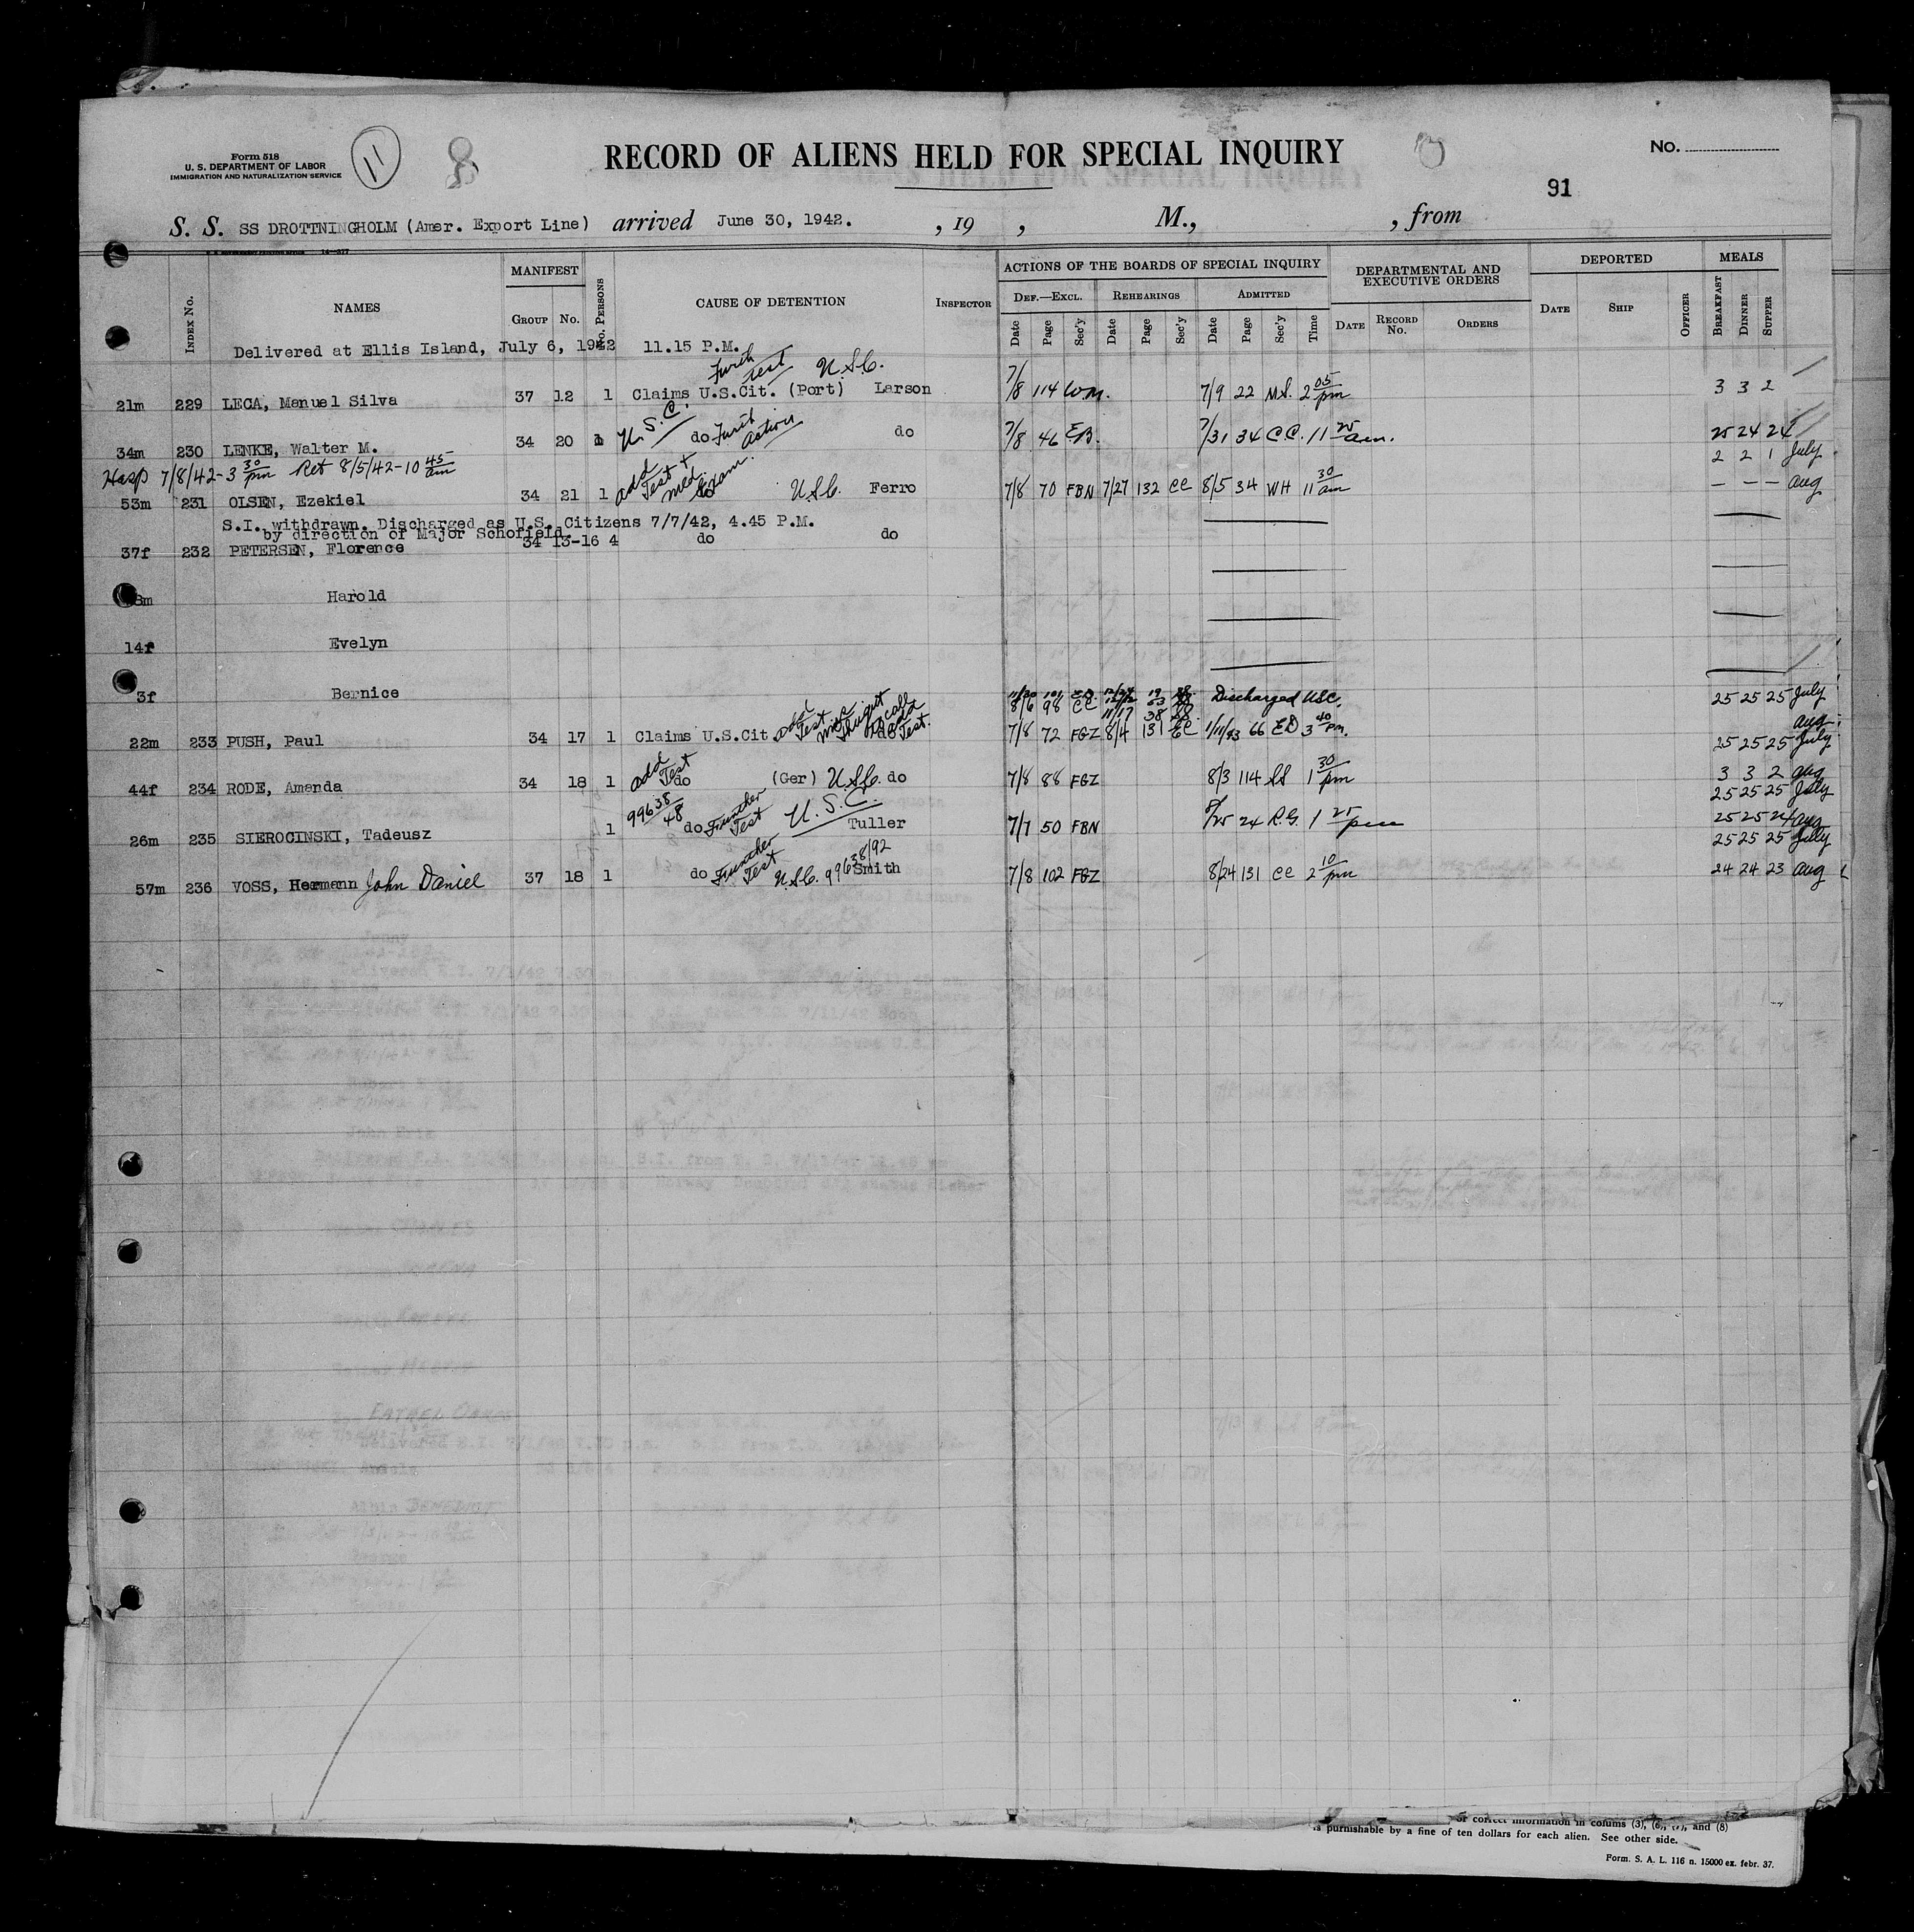 Form 518
U. S. DEPARTMENT OF LABOR
IMMIGRATION AND NATURALIZATION SERVICE
11
8
RECORD OF ALIENS HELD FOR SPECIAL INQUIRY
No.
91
S. S. SS DROTTNINGHOLM (Amer. Export Line) arrived June 30, 1942. , 19 , M., , from
INDEX No. NAMES MANIFEST GROUP No. No. PERSONS CAUSE OF DETENTION INSPECTOR
ACTIONS OF THE BOARDS OF SPECIAL INQUIRY
DEF.—EXCL. REHEARINGS ADMITTED
Date Page Sec'y Date Page Sec'y Date Page Sec'y Time
DEPARTMENTAL AND EXECUTIVE ORDERS
DATE RECORD No. ORDERS
DEPORTED
DATE SHIP OFFICER
MEALS
BREAKFAST DINNER SUPPER
Delivered at Ellis Island, July 6, 1942 11.15 P.M.
Furth Test U.S.C.
21m 229 LECA, Manuel Silva 37 12 1 Claims U.S.Cit. (Port) Larson 7/8 114 WM. 7/9 22 M.S. 2 05 pm 3 3 2
U.S.C. Furth action
34m 230 LENKE, Walter M. 34 20 1 do do 7/8 46 EB. 7/31 34 C.C. 11 25 am. 25 24 24 July
Hosp 7/8/42-3 30 pm Ret 8/5/42-10 45 am
2 2 1 July
add Test + med. Exam. U.S.C.
53m 231 OLSEN, Ezekiel 34 21 1 do Ferro 7/8 70 FBN 7/27 132 CC 8/5 34 WH 11 30 am — — — aug
S.I. withdrawn. Discharged as U.S. Citizens 7/7/42, 4.45 P.M.
by direction of Major Schofield.
37f 232 PETERSEN, Florence 34 13-16 4 do do
8m Harold
14f Evelyn
3f Bernice
11/30 101 ED. 12/24 19
8/6 98 CC 11/17 38 Discharged USC. 25 25 25 July
aug
22m 233 PUSH, Paul 34 17 1 Claims U.S.Cit. add Test do 7/8 72 FGZ 8/4 131 CC 1/11/43 66 ED 3 40 pm. 25 25 25 July
add Test
44f 234 RODE, Amanda 34 18 1 do (Ger) U.S.C. do 7/8 88 FGZ 8/3 114 SS 1 30 pm 3 3 2 aug
25 25 25 July
99638/48 Further Test U.S.C.
26m 235 SIEROCINSKI, Tadeusz 1 do Tuller 7/7 50 FBN 8/25 24 R.G. 1 25 pm 25 25 24 aug
25 25 25 July
Further Test U.S.C. 99638/92
57m 236 VOSS, Hermann John Daniel 37 18 1 do Smith 7/8 102 FGZ 8/24 131 CC 2 10 pm 24 24 23 aug
or correct information in colums (3), (6), (7), and (8)
is punishable by a fine of ten dollars for each alien. See other side.
Form. S. A. L. 116 n. 15000 ex. febr. 37.